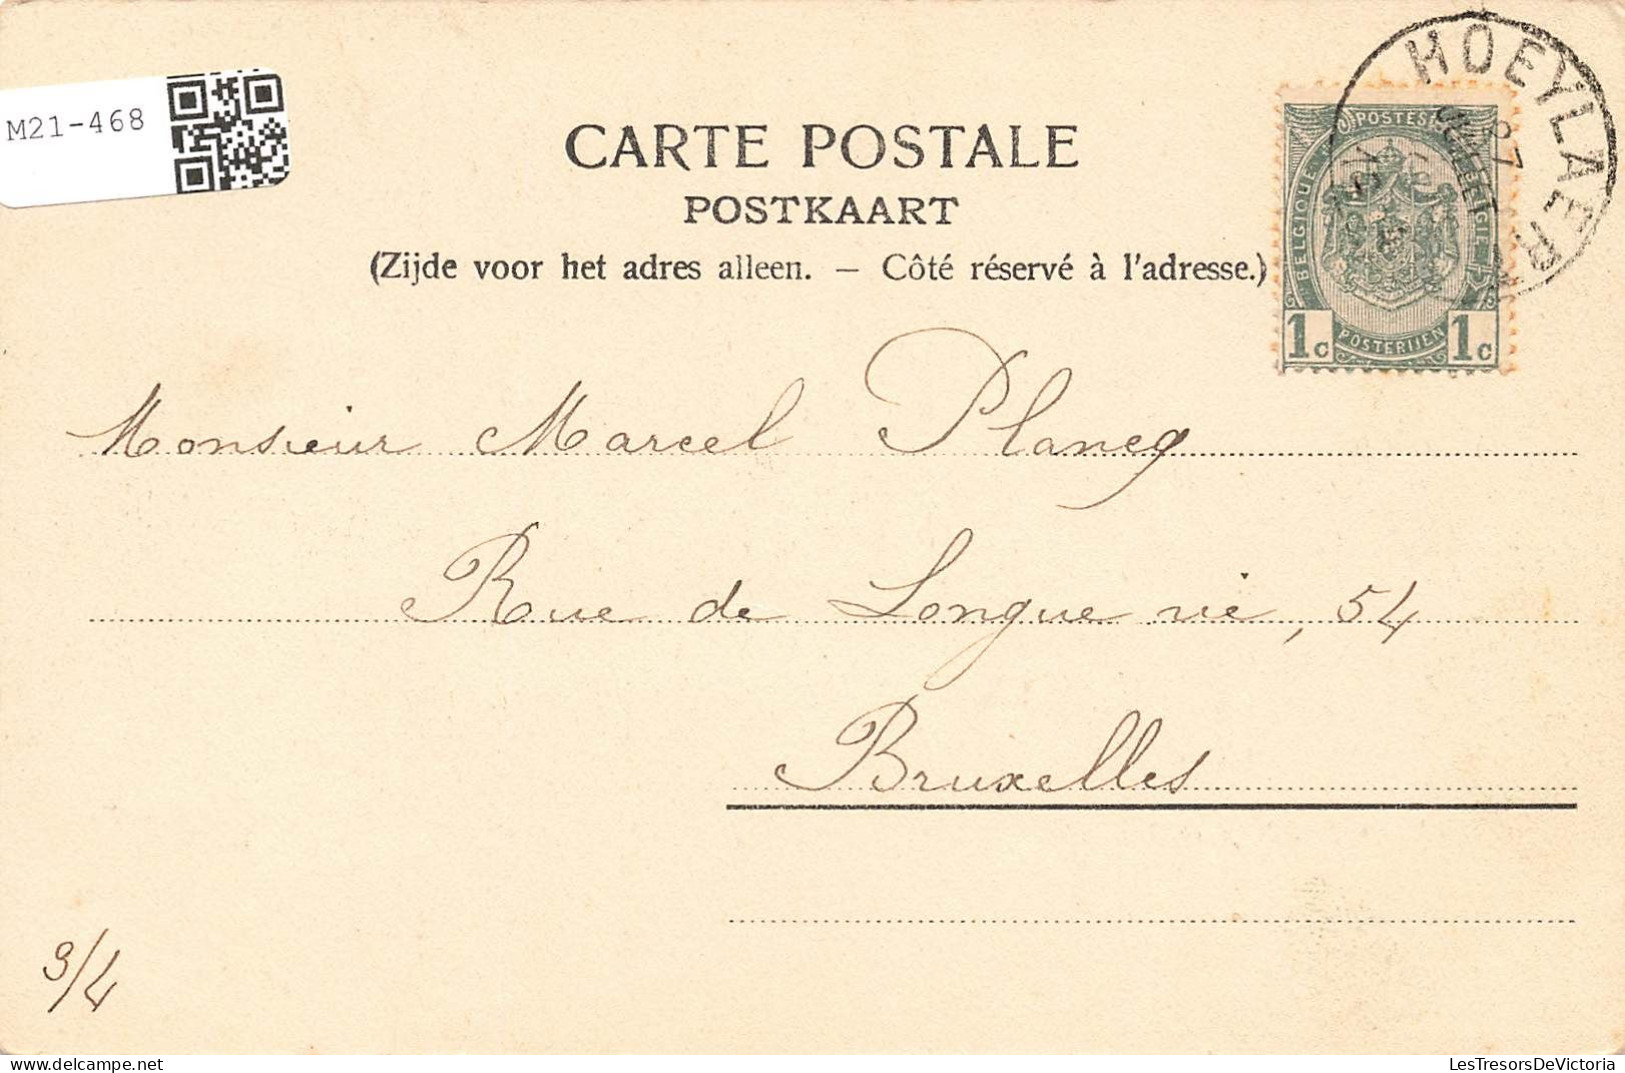 M21-468
CARTE POSTALE
POSTKAART
(Zijde voor het adres alleen. — Côté réservé à l'adresse.)
HOEYLAER
POSTES
BELGIQUE
BELGIË
POSTERIJEN
1c 1c
Monsieur Marcel Plancq
Rue de Longue vie, 54
Bruxelles
3/4
LesTresorsDeVictoria
delcampe.net